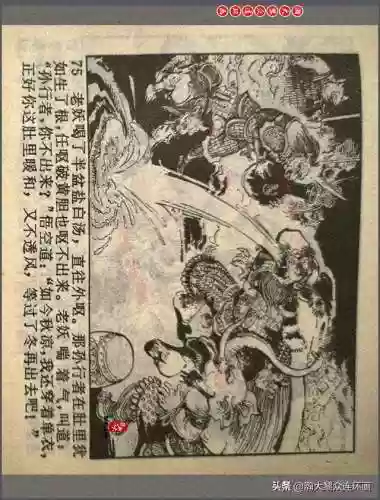 75 老妖喝了半盆盐白汤，直往外呕。那孙行者在肚里犹
如生了根，任呕破黄胆也呕不出来。老妖喘着气，叫道：
“孙行者，你不出来？”悟空道：“如今秋凉，我还穿着单衣。
正好你这肚里暖和，又不透风，等过了冬再出去吧！”
头条